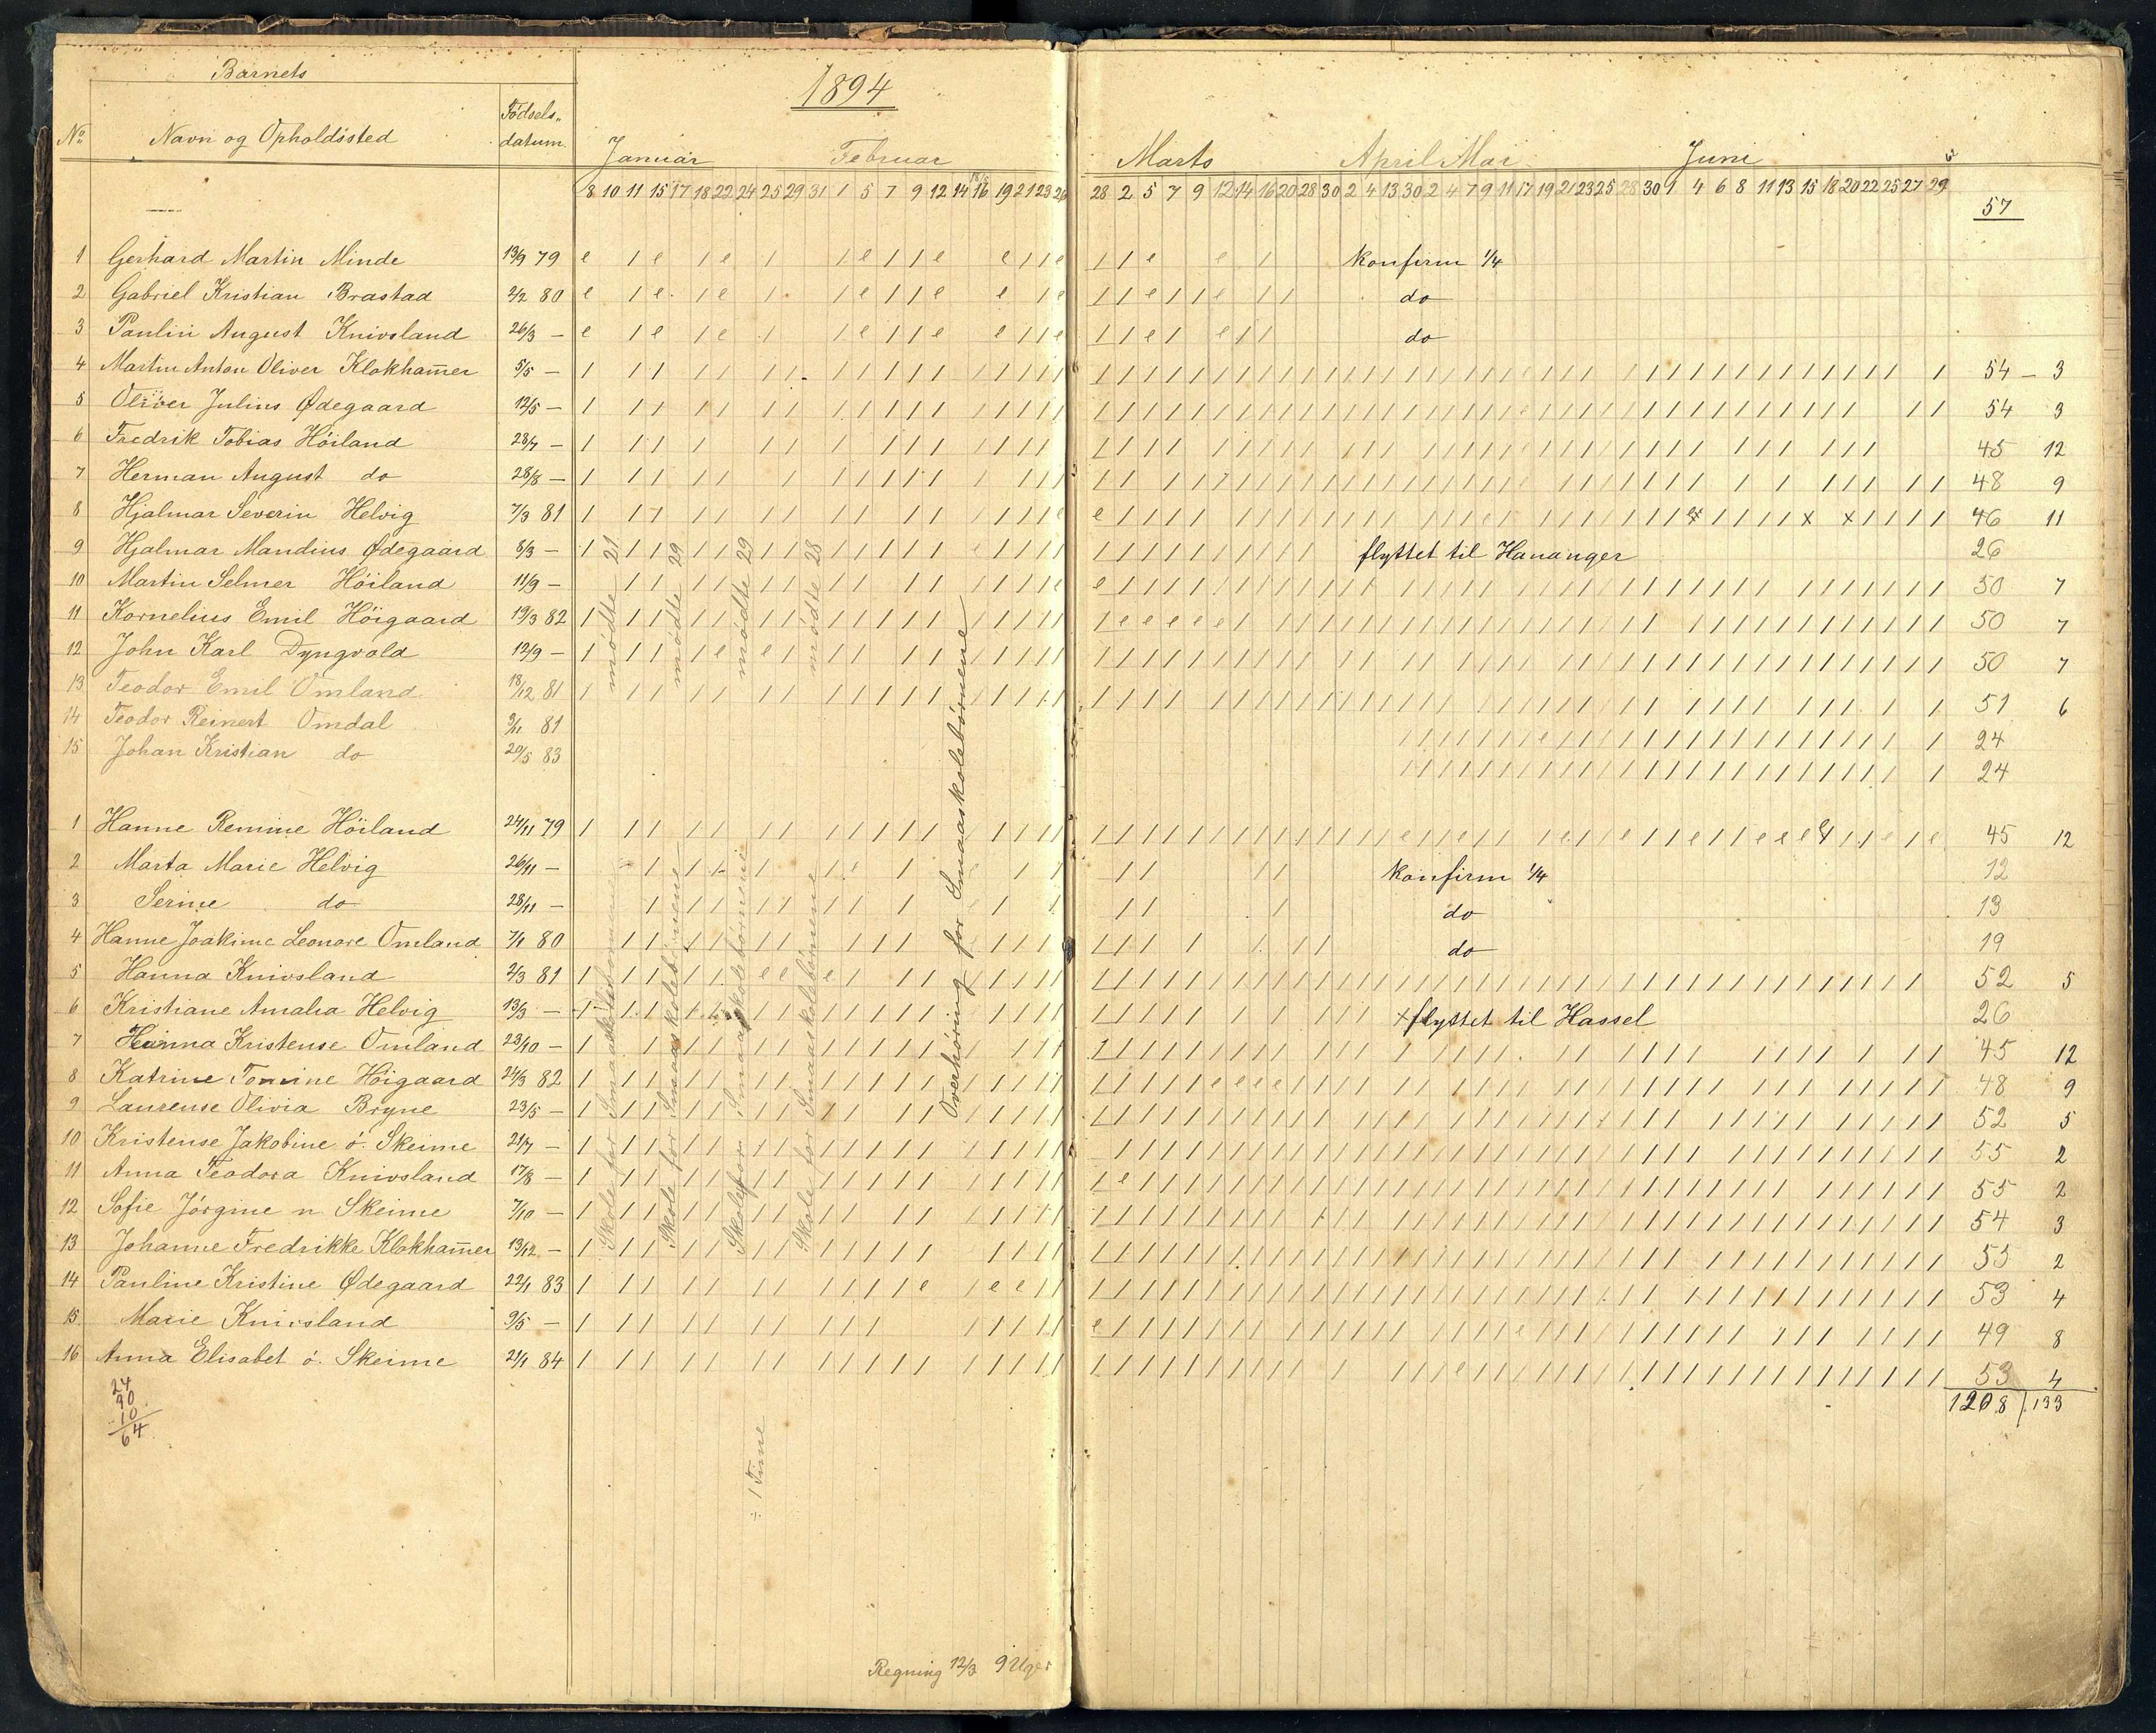 Barnets
1894
No Navn og Opholdssted Fødsels-
datum
Januar Februar Marts April Mai Juni
8 10 11 15 17 18 22 24 25 29 31 1 5 7 9 12 14 16 19 21 23 26 28 2 5 7 9 12 14 16 20 28 30 2 4 13 30 2 4 7 9 11 17 19 21 23 25 28 30 1 4 6 8 11 13 15 18 20 22 25 27 29
57
1 Gerhard Martin Minde 13/9 79 konfirm 1/4
2 Gabriel Kristian Brastad 2/2 80 do
3 Paulin August Knivsland 26/3 — do
4 Martin Anton Oliver Klokham̄er 5/5 — 54 — 3
5 Oliver Julius Ødegaard 12/5 — 54 3
6 Fredrik Tobias Höiland 28/7 — 45 12
7 Herman August do 28/8 — 48 9
8 Hjalmar Severin Helvig 7/3 81 46 11
9 Hjalmar Mandius Ødegaard 8/3 — flyttet til Hananger 26
10 Martin Selmer Höiland 11/9 — 50 7
11 Kornelius Emil Höigaard 19/3 82 50 7
12 John Karl Dyngvold 12/9 — 50 7
13 Teodor Emil Omland 18/12 81 51 6
14 Teodor Reinert Omdal 3/11 81 24
15 Johan Kristian do 20/5 83 24
1 Hanne Remine Höiland 24/11 79 45 12
2 Marta Marie Helvig 26/11 — konfirm 1/4 12
3 Serine do 28/11 — do 13
4 Hanne Joakime Leonore Omland 7/1 80 do 19
5 Hanna Knivsland 2/3 81 52 5
6 Kristiane Amalia Helvig 13/3 — x flyttet til Hassel 26
7 Hanna Kristense Omland 23/10 — 45 12
8 Katrine Tomine Höigaard 24/3 82 48 9
9 Laurense Olivia Bryne 23/5 — 52 5
10 Kristense Jakobine ö. Skeime 21/7 — 55 2
11 Anna Teodora Knivsland 17/8 — 55 2
12 Sofie Jörgine n. Skeime 7/10 — 54 3
13 Johanne Fredrikke Klokham̄er 13/12 — 55 2
14 Pauline Kristine Ødegaard 22/1 83 53 4
15 Marie Knivsland 9/5 — 49 8
16 Anna Elisabet ö. Skeime 21/1 84 53 4
1208 / 133
24
30
10
64
Skole for Smaaskolebörnene mödte 21
Skole for Smaaskolebörnene mödte 29
Skole for Smaaskolebörnene mödte 29
Skole for Smaaskolebörnene mödte 28
Overhöring for Smaaskolebörnene
÷ 1 Time
Regning 12/3 9 Uger